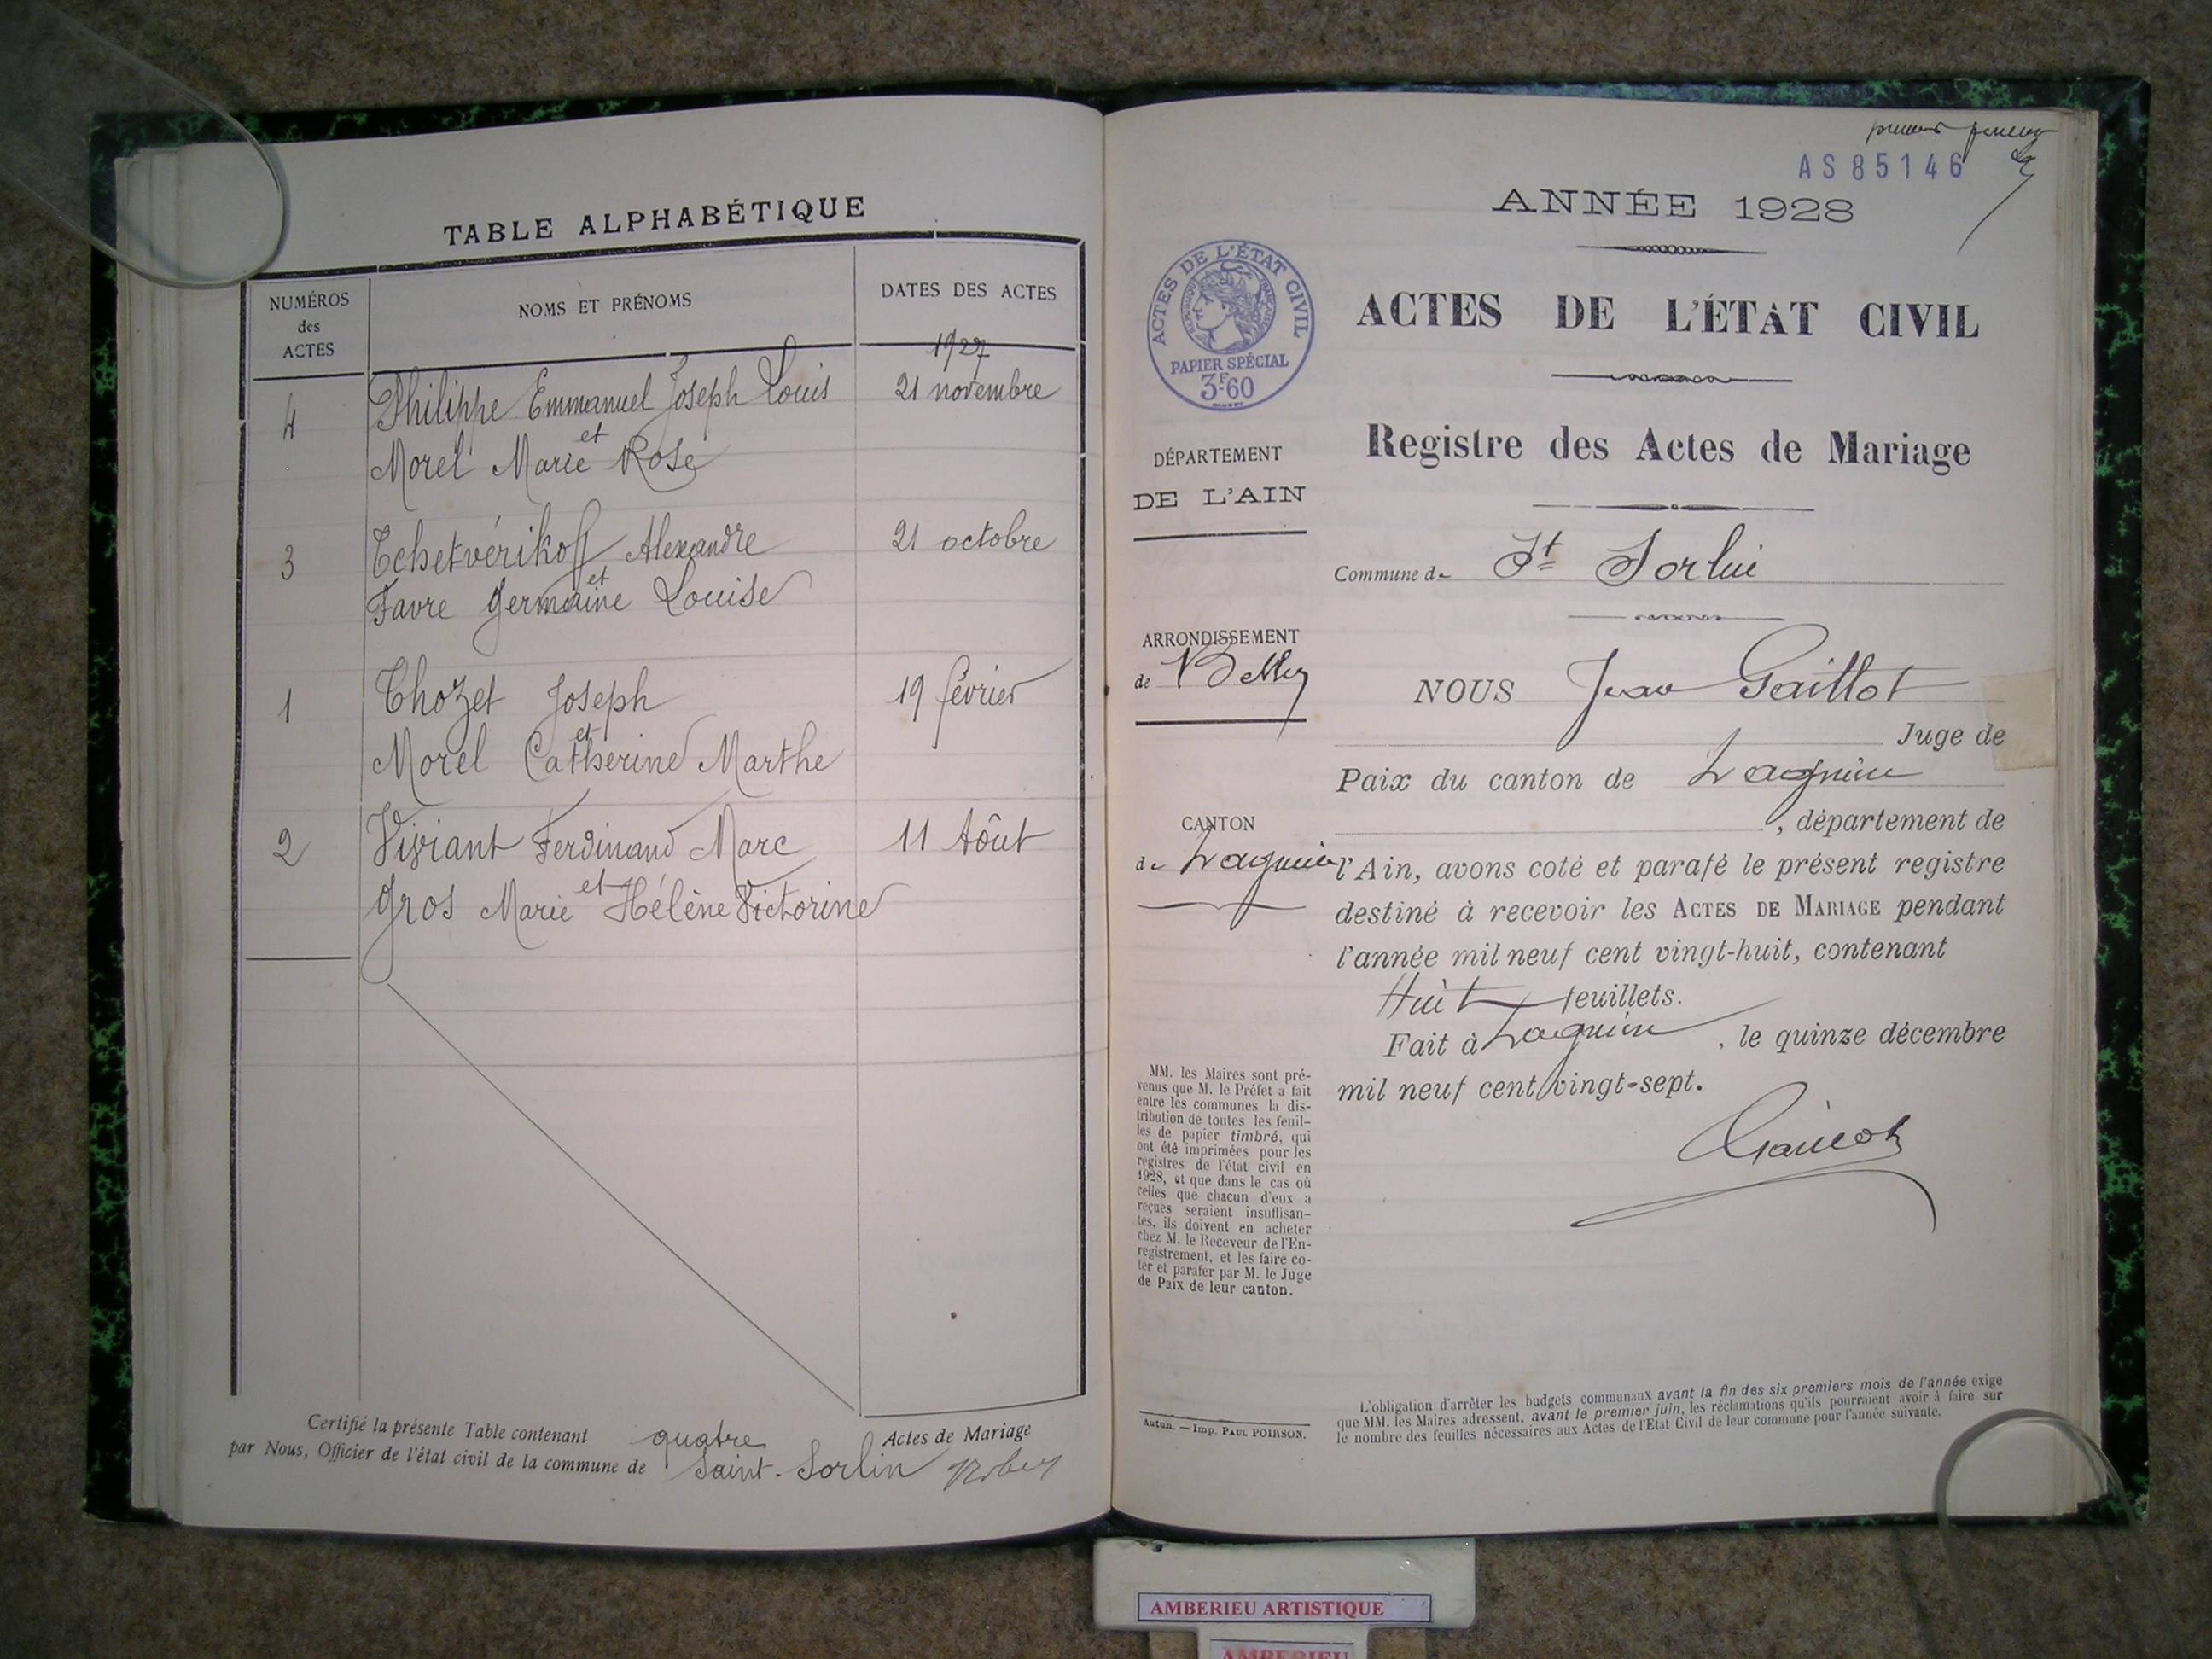 TABLE ALPHABÉTIQUE
NUMÉROS
des
ACTES
NOMS ET PRÉNOMS
DATES DES ACTES
1927
4
Philippe Emmanuel Joseph Louis
21 novembre
et
Morel Marie Rose
3
Tchetvérikoff Alexandre
21 octobre
et
Favre Germaine Louise
1
Thozet Joseph
19 février
et
Morel Catherine Marthe
2
Viviant Ferdinand Marc
11 Aôut
et
Gros Marie Hélène Victorine
Certifié la présente Table contenant quatre Actes de Mariage
par Nous, Officier de l'état civil de la commune de Saint-Sorlin
premier
AS85146
ANNÉE 1928
ACTES DE L'ÉTAT CIVIL
RÉPUBLIQUE FRANÇAISE
PAPIER SPÉCIAL
3F.60
ACTES DE L'ÉTAT CIVIL
Registre des Actes de Mariage
DÉPARTEMENT
DE L'AIN
Commune de St Sorlin
ARRONDISSEMENT
de Belley
CANTON
de Lagnieu
NOUS Jean Gaillot
Juge de
Paix du canton de Lagnieu
, département de
l'Ain, avons coté et parafé le présent registre
destiné à recevoir les ACTES DE MARIAGE pendant
l'année mil neuf cent vingt-huit, contenant
Huit feuillets.
Fait à Lagnieu, le quinze décembre
mil neuf cent vingt-sept.
Gaillot
MM. les Maires sont pré-
venus que M. le Préfet a fait
entre les communes la dis-
tribution de toutes les feuil-
les de papier timbré, qui
ont été imprimées pour les
registres de l'état civil en
1928, et que dans le cas où
celles que chacun d'eux a
reçues seraient insuffisan-
tes, ils doivent en acheter
chez M. le Receveur de l'En-
registrement, et les faire co-
ter et parafer par M. le Juge
de Paix de leur canton.
Autun. — Imp. PAUL POIRSON.
L'obligation d'arrêter les budgets communaux avant la fin des six premiers mois de l'année exige
que MM. les Maires adressent, avant le premier juin, les réclamations qu'ils pourraient avoir à faire sur
le nombre des feuilles nécessaires aux Actes de l'Etat Civil de leur commune pour l'année suivante.
AMBERIEU ARTISTIQUE
AMBERIEU